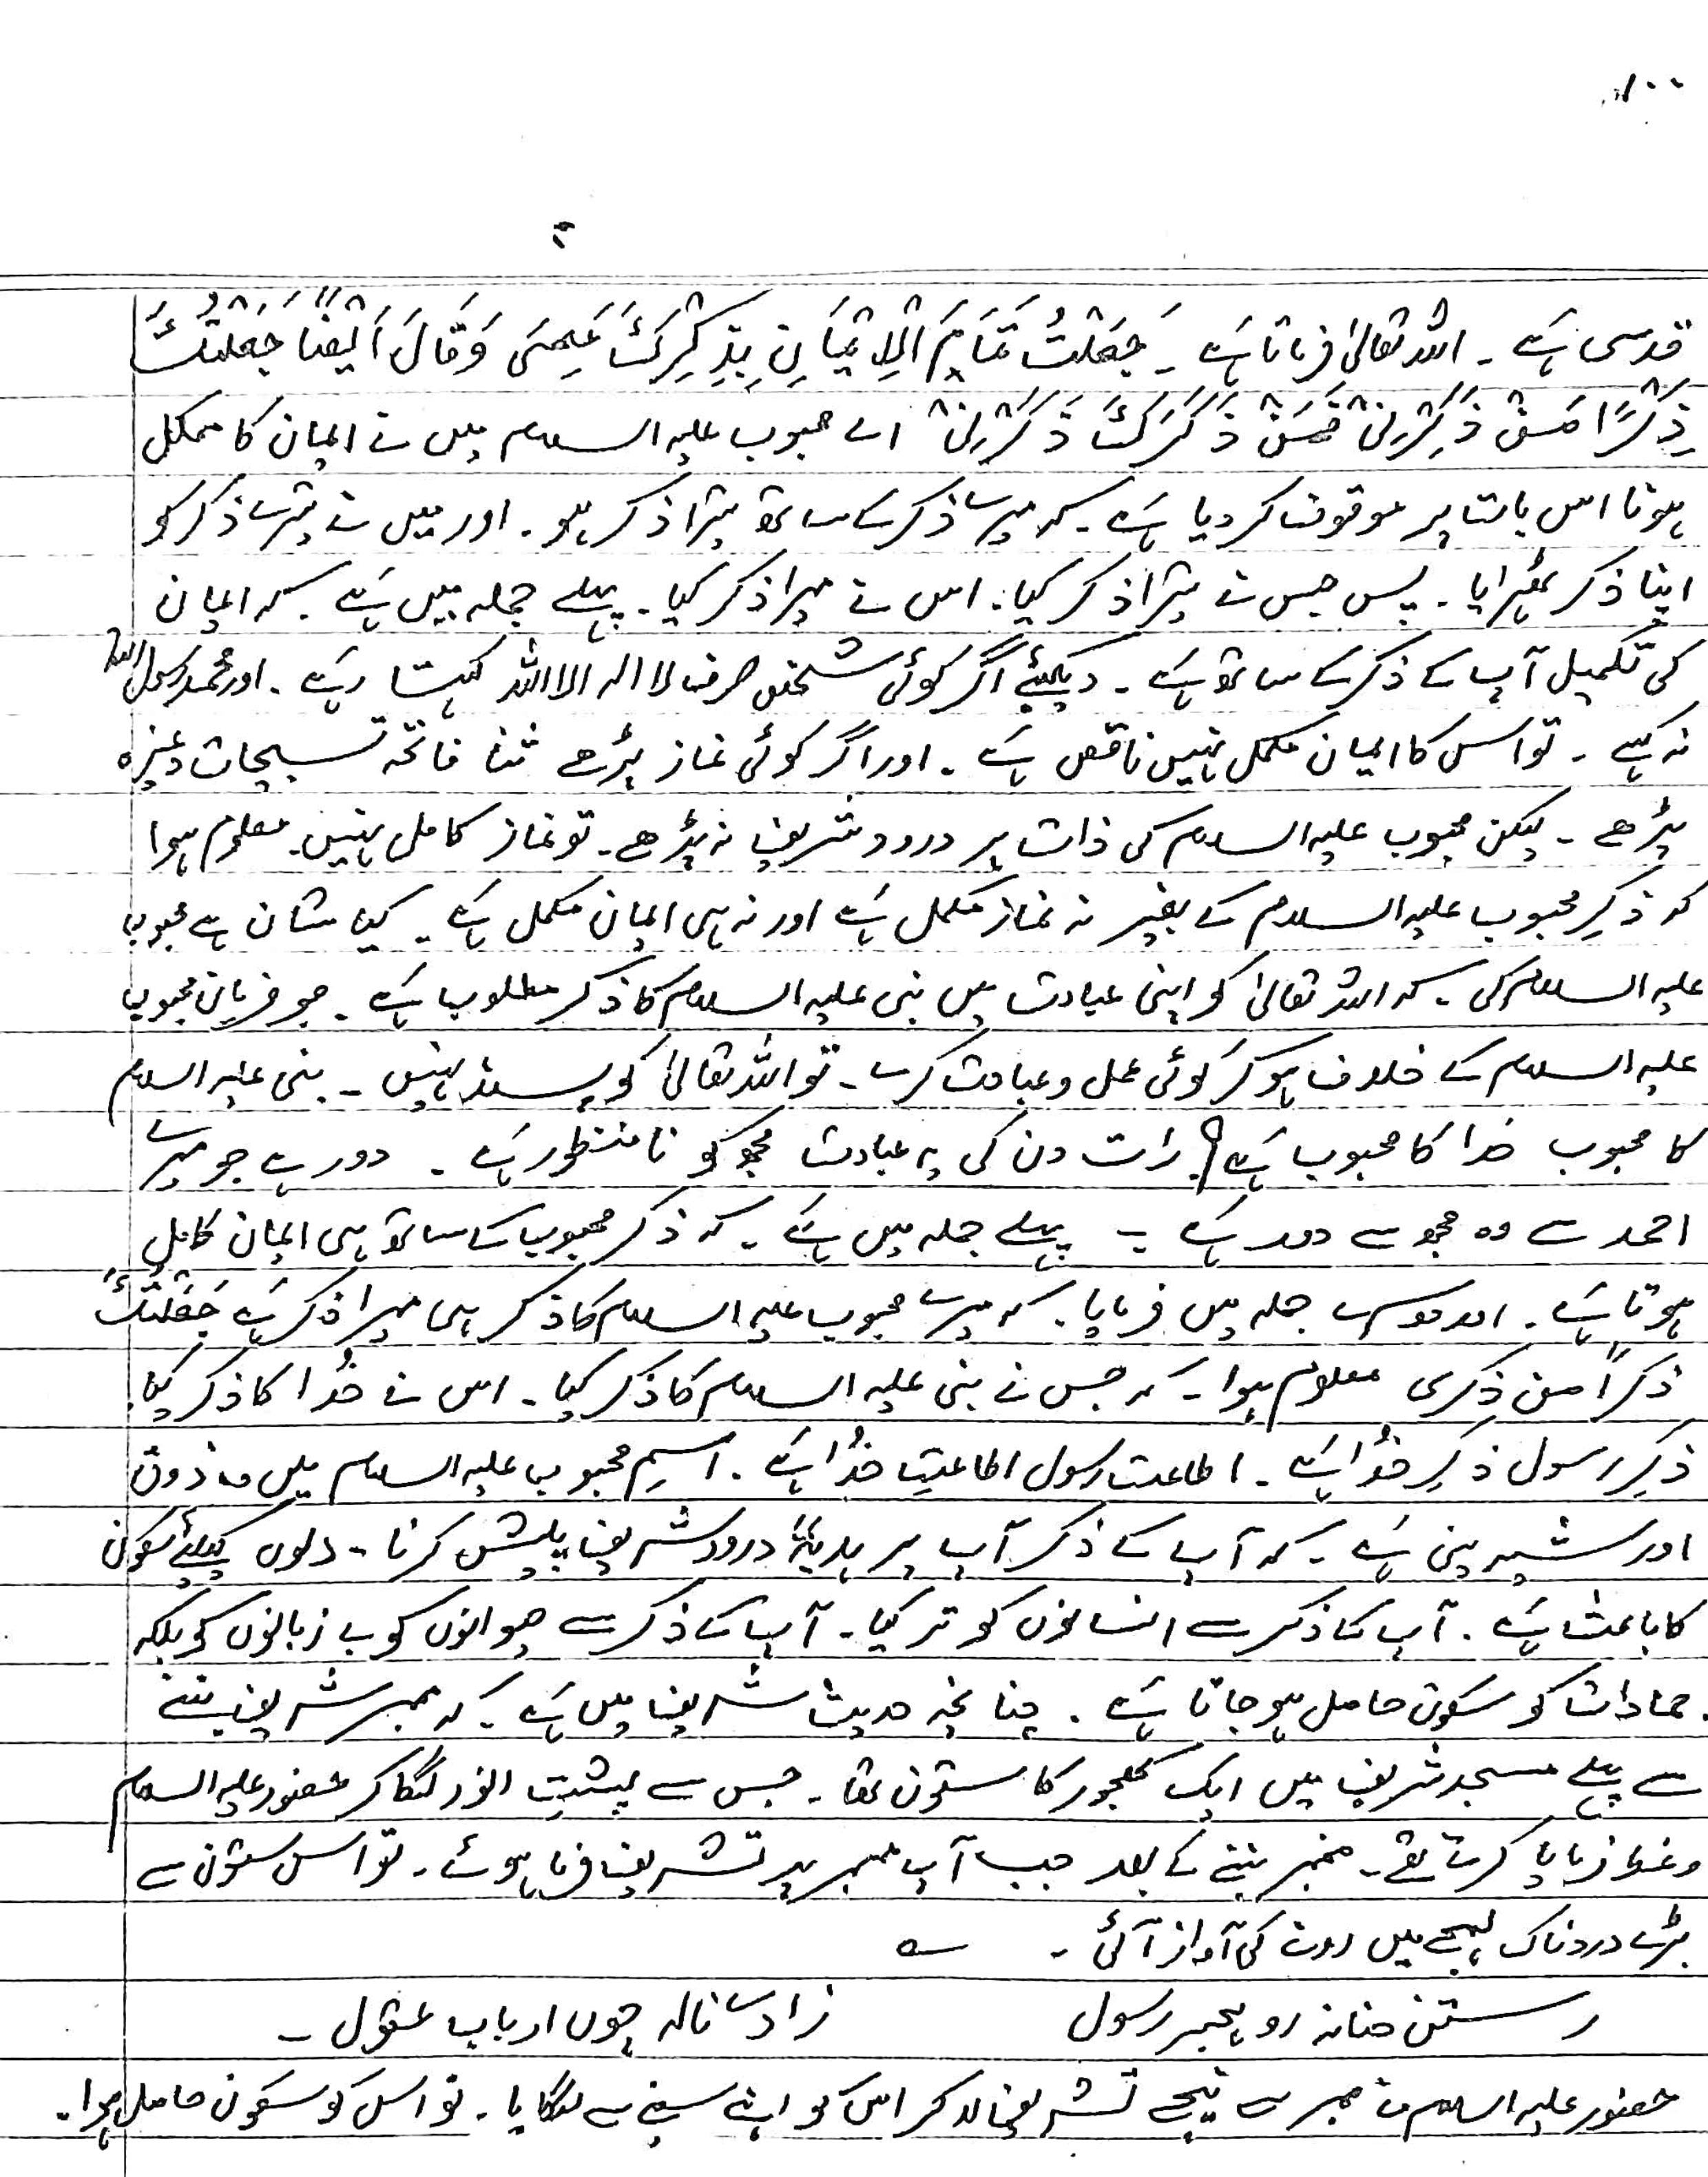 قدسی ہے ۔ اللہ تعالیٰ فرماتا ہے ۔ جَعَلْتُ تَمَامَ الْاِیْمَانِ بِذِکْرِکَ مَعِیَ وَقَالَ اَیْضًا جَعَلْتُکَ
ذِکْرًا مِنْ ذِکْرِیْ فَمَنْ ذَکَرَکَ ذَکَرَنِیْ اے محبوب علیہ السلام میں نے ایمان کا مکمل
ہونا اس بات پر موقوف کر دیا ہے ۔ کہ میرے ذکر کے ساتھ تیرا ذکر ہو ۔ اور میں نے تیرے ذکر کو
اپنا ذکر ٹھہرایا ۔ پس جس نے تیرا ذکر کیا ۔ اس نے میرا ذکر کیا ۔ پہلے جملہ میں ہے ۔ کہ ایمان
کی تکمیل آپ کے ذکر کے ساتھ ہے ۔ دیکھئے اگر کوئی شخص صرف لا الہ الا اللہ کہتا رہے ۔ اور محمد رسول اللہ
نہ کہے ۔ تو اس کا ایمان مکمل نہیں ناقص ہے ۔ اور اگر کوئی نماز پڑھے ثنا فاتحہ تسبیحات وغیرہ
پڑھے ۔ لیکن محبوب علیہ السلام کی ذات پر درود شریف نہ پڑھے ۔ تو نماز کامل نہیں ۔ معلوم ہوا
کہ ذکرِ محبوب علیہ السلام کے بغیر نہ نماز مکمل ہے اور نہ ہی ایمان مکمل ہے ۔ کیا شان ہے محبوب
علیہ السلام کی ۔ کہ اللہ تعالیٰ کو اپنی عبادت میں نبی علیہ السلام کا ذکر مطلوب ہے ۔ جو فرمان محبوب
علیہ السلام کے خلاف ہو کر کوئی عمل و عبادت کرے ۔ تو اللہ تعالیٰ کو پسند نہیں ۔ نبی علیہ السلام
کا محبوب خدا کا محبوب ہے رات دن کی یہ عبادت مجھ کو نامنظور ہے ۔ دور ہے جو میرے
احمد سے وہ مجھ سے دور ہے ۔ پہلے جملہ میں ہے ۔ کہ ذکر محبوب کے ساتھ ہی ایمان کامل
ہوتا ہے ۔ اور دوسرے جملہ میں فرمایا ۔ کہ میرے محبوب علیہ السلام کا ذکر ہی میرا ذکر ہے جَعَلْتُکَ
ذکرًا من ذکری معلوم ہوا ۔ کہ جس نے نبی علیہ السلام کا ذکر کیا ۔ اس نے خُدا کا ذکر کیا ۔
ذکرِ رسول ذکرِ خدُا ہے ۔ اطاعت رسول اطاعتِ خدُا ہے ۔ اسمِ محبوب علیہ السلام میں وہ ذوق
اور شیرینی ہے ۔ کہ آپ کے ذکر آپ پر ہدیۂ درود شریف پیش کرنا ۔ دلوں کیلئے سکون
کا باعث ہے ۔ آپ کے ذکر سے انسانوں کو تر کیا ۔ آپ کے ذکر سے حیوانوں کو بے زبانوں کو بلکہ
جمادات کو سکون حاصل ہو جاتا ہے ۔ چنانچہ حدیث شریف میں ہے ۔ کہ ممبر شریف بننے
سے پہلے مسجد شریف میں ایک کھجور کا ستون تھا ۔ جس سے پشتِ انور لگا کر حضور علیہ السلام
وعظ فرمایا کرتے تھے ۔ منبر بننے کے بعد جب آپ ممبر پر تشریف فرما ہوئے ۔ تو اس ستون سے
بڑے دردناک لہجے میں رونے کی آواز آئی ۔
ستن حنانہ رو ہجر رسول زادے نالہ چوں ارباب عقول ۔
حضور علیہ السلام نے ممبر سے نیچے تشریف لا کر اس کو اپنے سینے سے لگایا ۔ تو اس کو سکون حاصل ہوا ۔